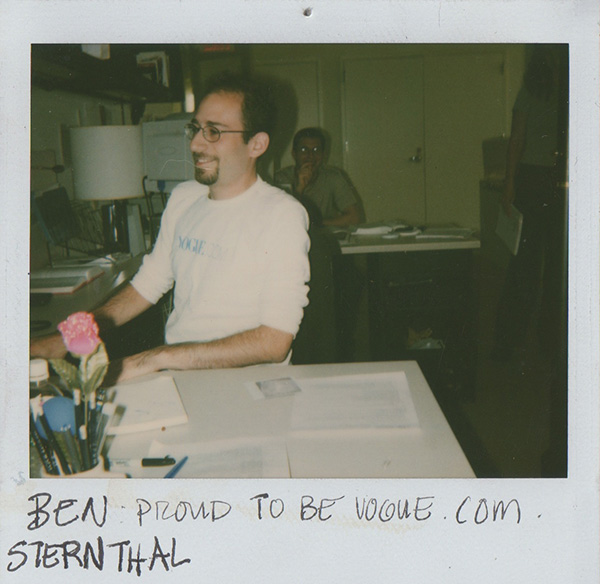 VOGUE
BEN PROUD TO BE VOGUE.COM.
STERNTHAL